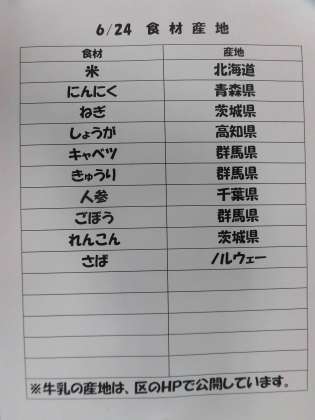 6/24 食材産地
食材 産地
米 北海道
にんにく 青森県
ねぎ 茨城県
しょうが 高知県
キャベツ 群馬県
きゅうり 群馬県
人参 千葉県
ごぼう 群馬県
れんこん 茨城県
さば ノルウェー
※牛乳の産地は、区のHPで公開しています。